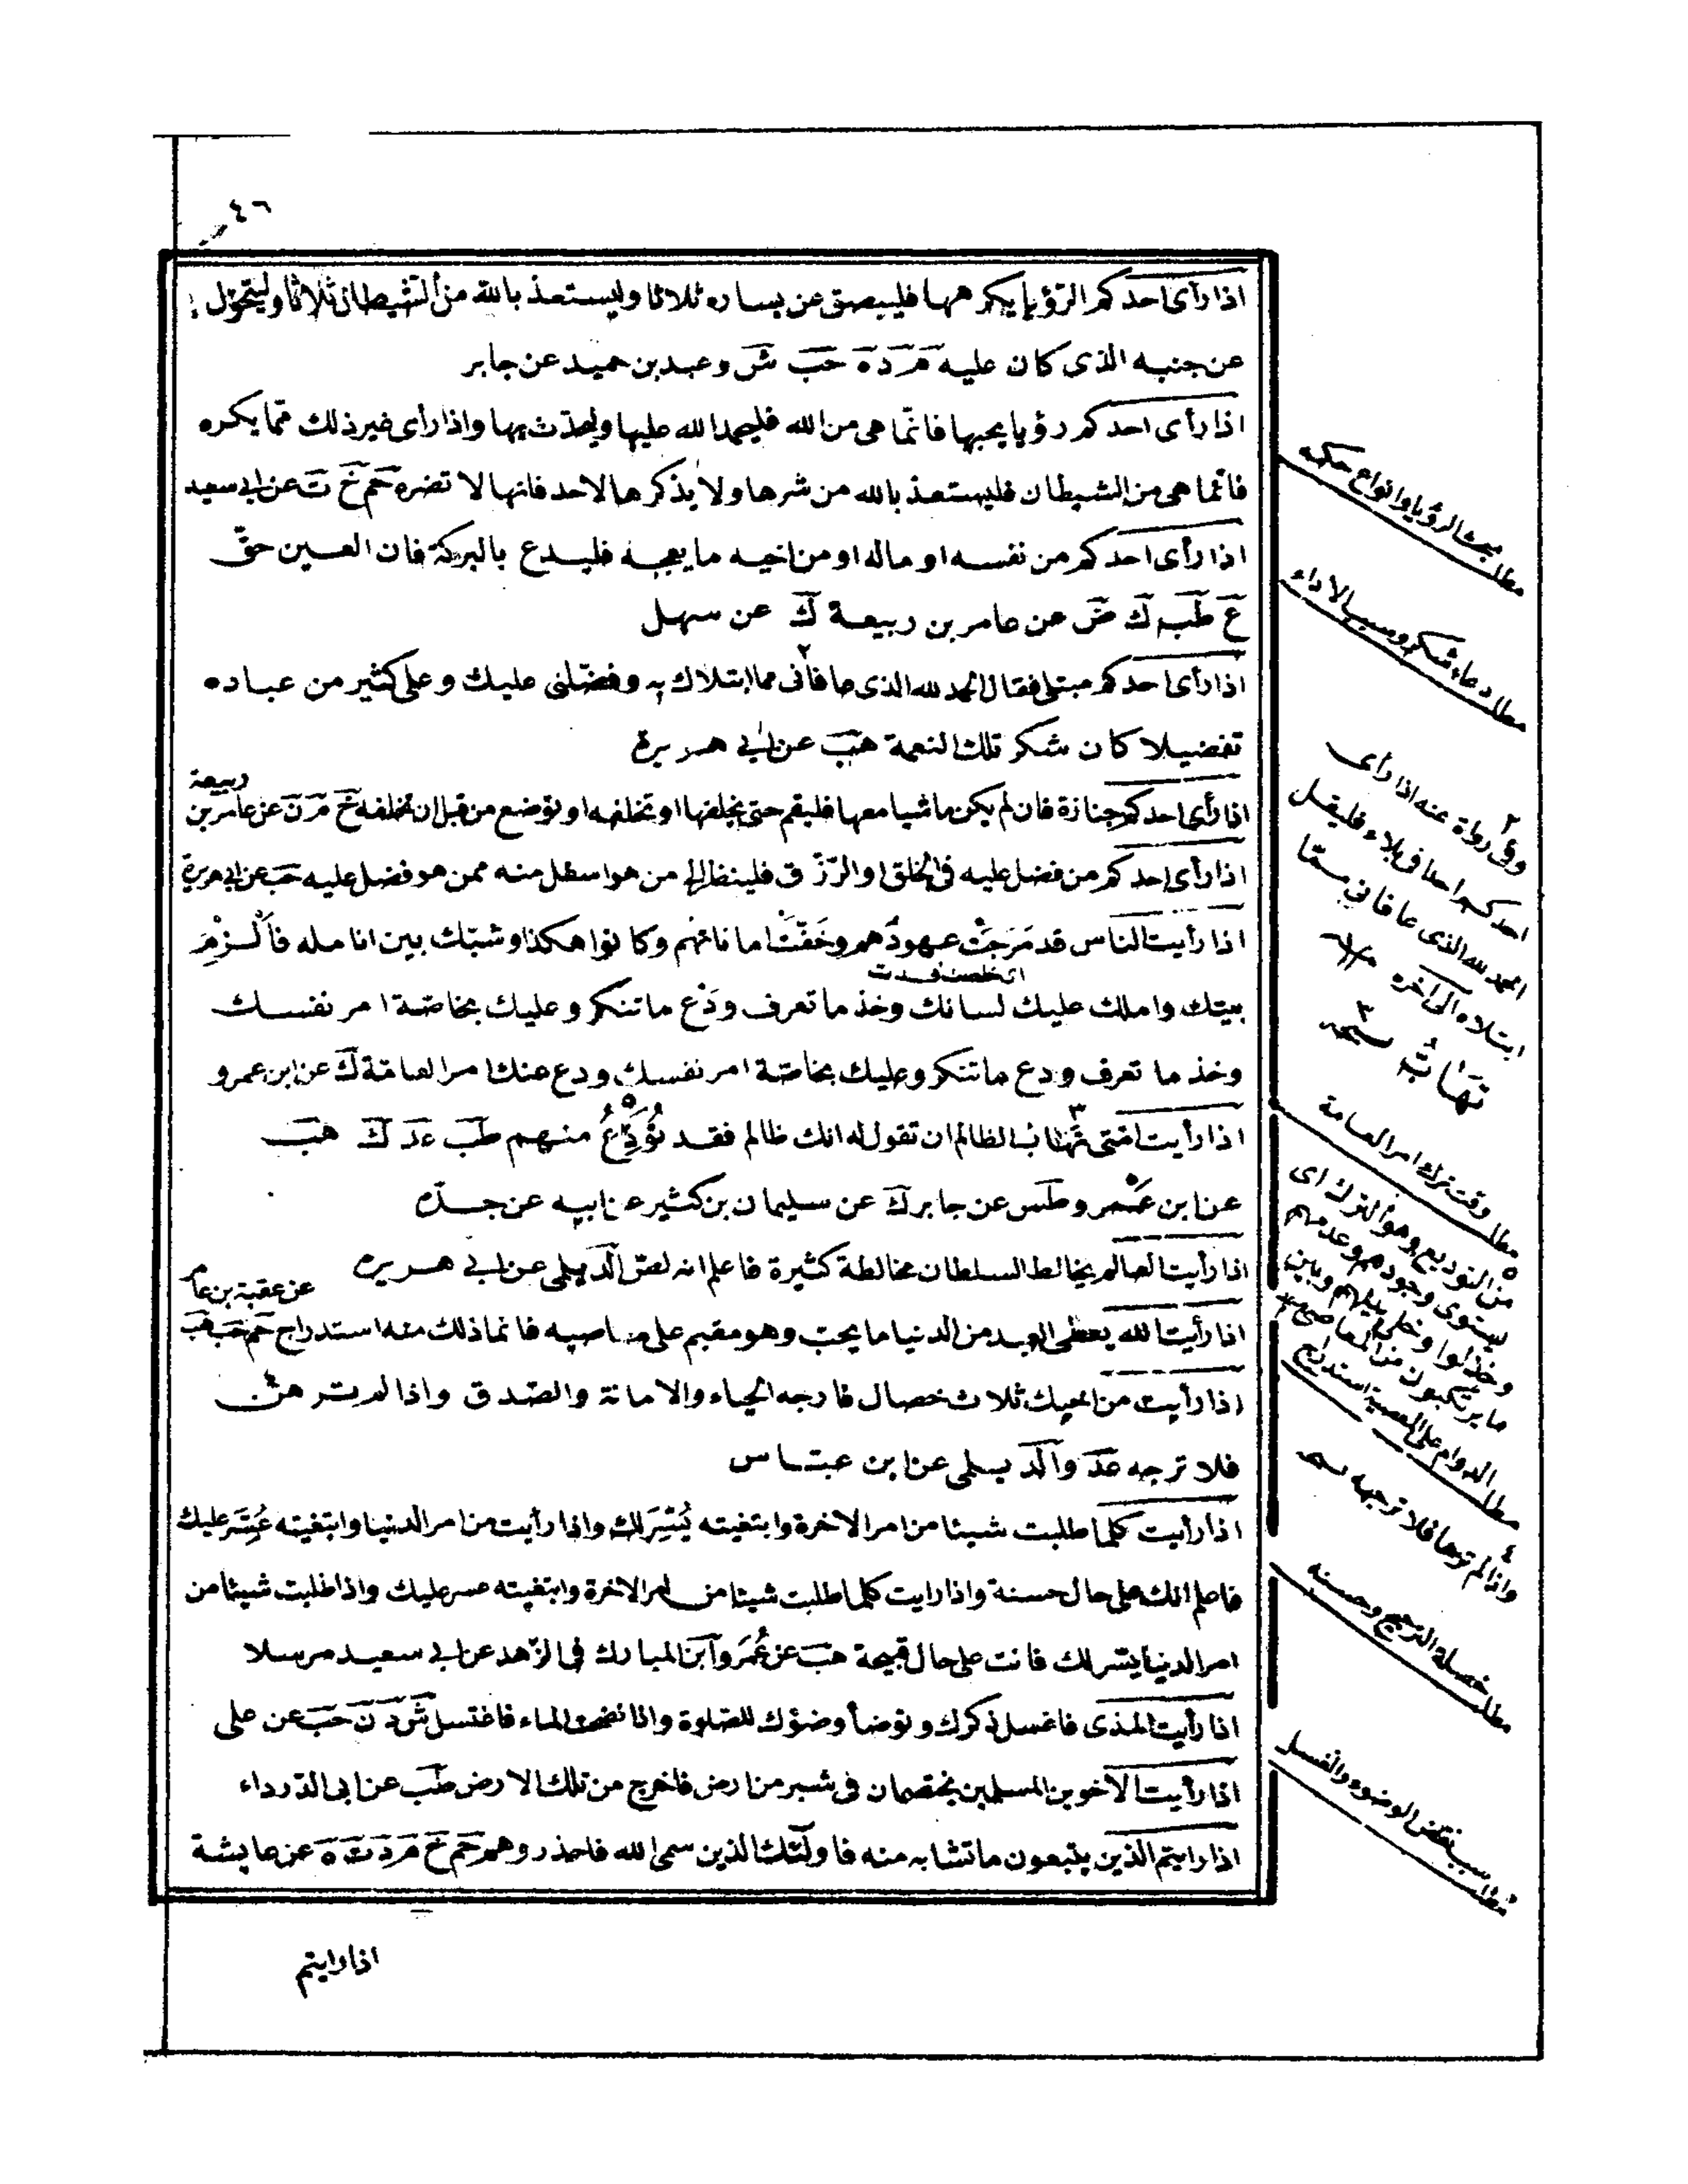 ٤٦
اذا رأى احدكم الرؤيا يكرهها فليبصق عن يساره ثلاثا وليستعذ بالله من الشيطان ثلاثا وليتحوّل
عن جنبه الذى كان عليه مَ دَ هَ حَبَ شَ وعبد بن حميد عن جابر
اذا رأى احدكم رؤيا يحبها فانّما هى من الله فليحمد الله عليها وليحدّث بها واذا رأى غير ذلك ممّا يكره
فانّما هى من الشيطان فليستعذ بالله من شرها ولا يذكرها لاحد فانها لا تضره حَم خَ تَ عن ابى سعيد
اذا رأى احدكم من نفسه او ماله او من اخيه ما يعجبه فليدع بالبركة فان العين حقّ
عَ طَب كَ ضَ عن عامر بن ربيعة كَ عن سهل
اذا رأى احدكم مبتلى فقال الحمد لله الذى عافانى ٢ مما ابتلاك به وفضّلنى عليك وعلى كثير من عباده
تفضيلا كان شكر تلك النعمة هَبَ عن ابى هريرة
اذا رأى احدكم جنازة فان لم يكن ماشيا معها فليقم حتى يخلفها او تخلفه او توضع من قبل ان تخلفه خَ مَ نَ عن عامر بن ربيعة
اذا رأى احدكم من فضل عليه فى الخلق او الرّزق فلينظر الى من هو اسفل منه ممن هو فضل عليه هَبَ عن ابى هريرة
اذا رأيت الناس قد مَرَجَتْ عهودُهم وخَفّتْ اماناتهم وكانوا هكذا وشبّك بين انامله فاَلْزَمْ
بيتك واملك عليك لسانك وخذ ما تعرف ودَعْ ما تنكر وعليك بخاصّة امر نفسك
وخذ ما تعرف ودع ما تنكر وعليك بخاصّة امر نفسك ودع عنك امر العامّة كَ عن ابن عمرو
اذا رأيت امّتى تهَابُ ٣ الظالم ان تقول له انك ظالم فقد تُوُدِّعَ ٥ منهم طَب عَد كَ هَب
عن ابن عَمْرو وطَس عن جابر كَ عن سليمان بن كثير عن ابيه عن جدّه
اذا رأيت العالم يخالط السلطان مخالطة كثيرة فاعلم انه لصّ الديلمى عن ابى هريره
اذا رأيت الله يعطى العبد من الدنيا ما يحب وهو مقيم على معاصيه فانما ذلك منه استدراج حَم طَب هَب عن عقبة بن عامر
اذا رأيت من اخيك ثلاث خصال فارجه الحياء والامانة والصّدق واذا لم تر هنّ ٤
فلا ترجه عَد والديلمى عن ابن عبّاس
اذا رأيت كلما طلبت شيئا من امر الاخرة وابتغيته يُسّرَ لك واذا رأيت من امر الدنيا وابتغيته عُسِّرَ عليك
فاعلم انك على حال حسنة واذا رايت كلما طلبت شيئا من امر الاخرة وابتغيته عسر عليك واذا طلبت شيئا من
امر الدنيا يسّر لك فانت على حال قبيحة هَبَ عن عُمَرَ وابن المبارك فى الزّهد عن ابى سعيد مرسلا
اذا رأيت المذى فاغسل ذكرك وتوضأ وضوءك للصّلوة واذا نضحت الماء فاغتسل شَ دَ نَ حَب عن على
اذا رأيت الاخوين المسلمين يختصمان فى شبر من ارض فاخرج من تلك الارض طَب عن ابى الدّرداء
اذا رايتم الذين يتبعون ما تشابه منه فاولئك الذين سمى الله فاحذروهم حَم خَ مَ دَ تَ هَ عن عايشة
اذا رايتم
مطلب مبحث الرؤيا وانواع حكمه
مطلب دعاء شكر وسبب الاداء
٢
وفى رواية عنه اذا رأى
احدكم احدا فى بلاء فليقل
الحمد لله الذى عافانى ممّا
ابتلاه الى آخره
٣
تَهَابُ نسخه
مطلب وقت ترك امر العامة
٥
من التوديع وهو الترك اى
يستوى وجودهم وعدمهم
وخذلوا وخلى بينهم وبين
ما يرتكبون من المعاصى
مطلب الدوام على المعصية استدراج
٤
واذا لم ترها فلا ترجه نسخه
مطلب خصلة الترجيح وحسنه
مطلب سبب نقض الوضوء والغسل